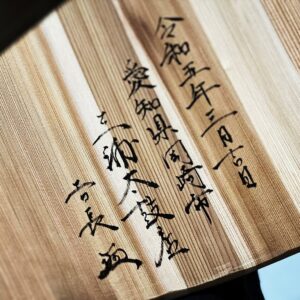 令和五年三月吉日
愛知県岡崎市
三浦太鼓店